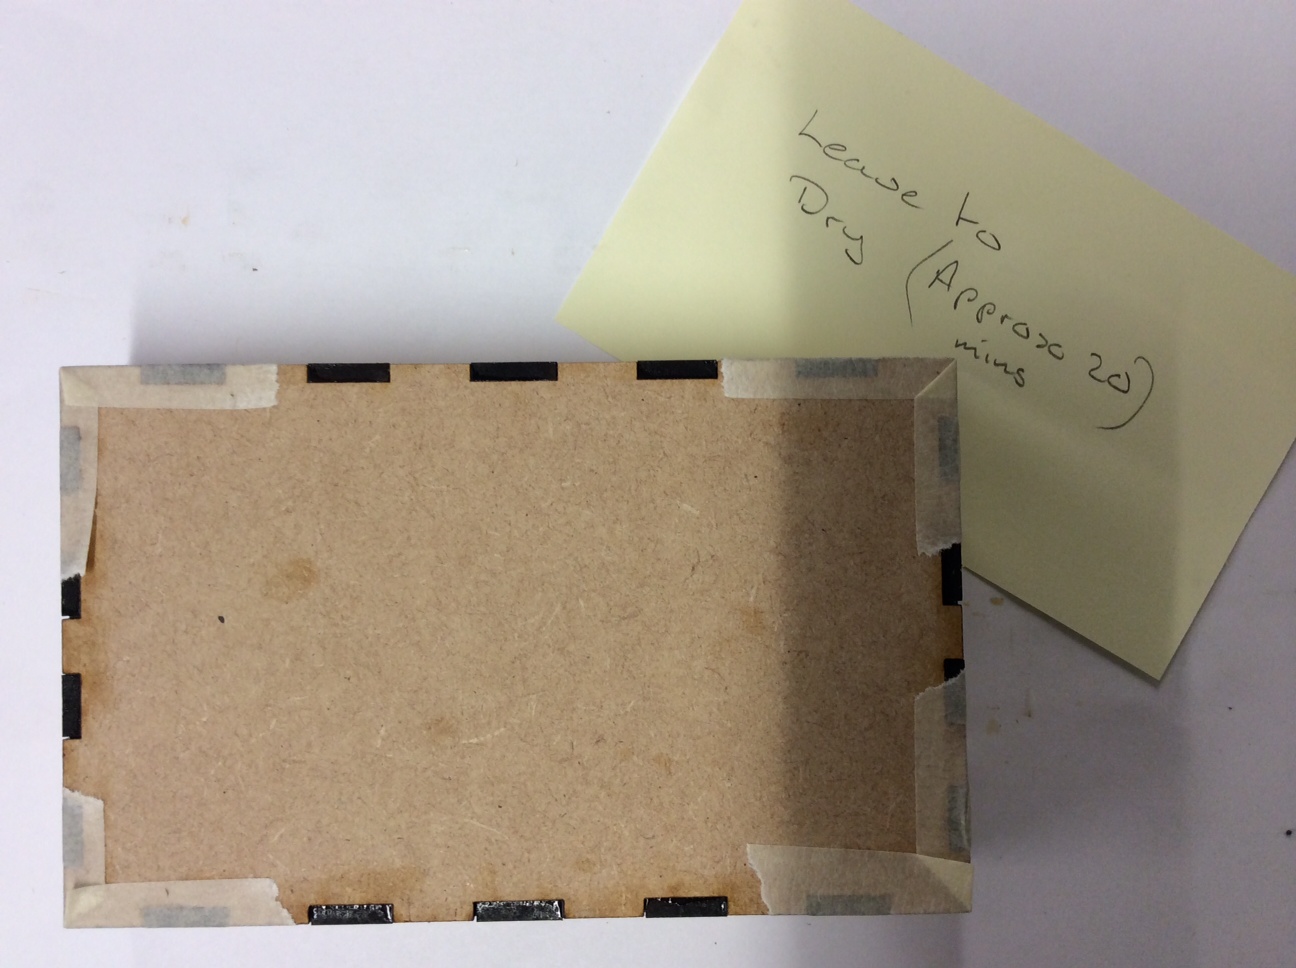 Leave to
Dry (Approx 20)
mins